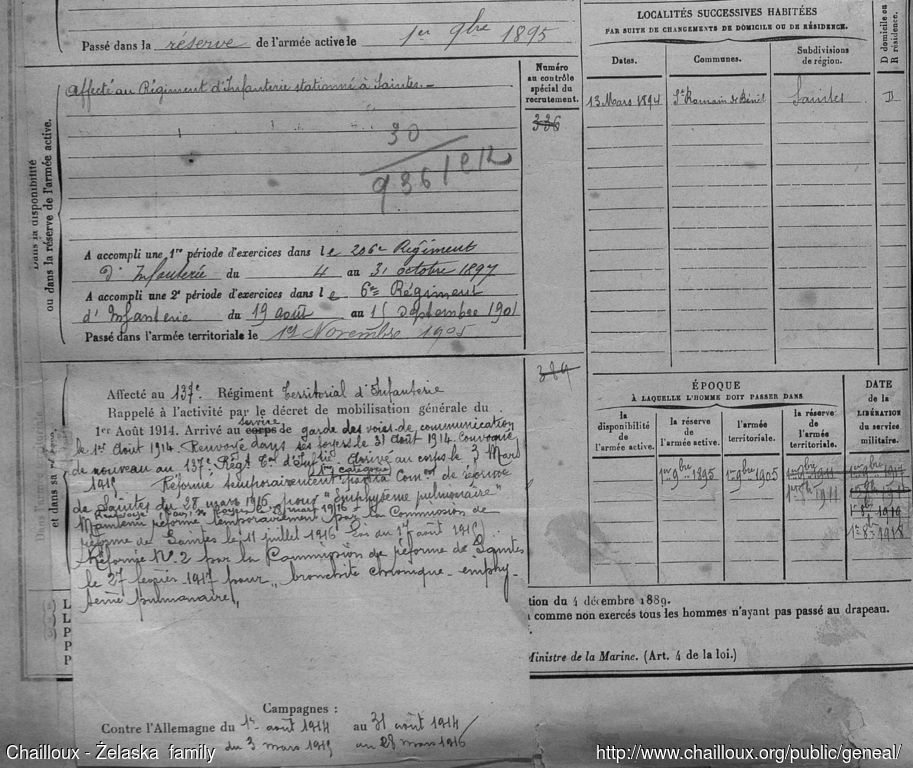 Passé dans la réserve de l'armée active le 1er 9bre 1895
Dans la disponibilité
ou dans la réserve de l'armée active.
Affecté au Régiment d'Infanterie stationné à Saintes.
30
936
A accompli une 1re période d'exercices dans le 206e Régiment
d'Infanterie du 4 au 31 octobre 1897
A accompli une 2e période d'exercices dans le 6e Régiment
d'Infanterie du 19 août au 15 septembre 1901
Passé dans l'armée territoriale le 1er Novembre 1905
Numéro
au contrôle
spécial du
recrutement.
336
389
LOCALITÉS SUCCESSIVES HABITÉES
PAR SUITE DE CHANGEMENTS DE DOMICILE OU DE RÉSIDENCE.
Dates.
Communes.
Subdivisions
de région.
D domicile ou
R résidence.
13 Mars 1894 St Romain de Benêt Saintes D
Affecté au 137e Régiment Territorial d'Infanterie
Rappelé à l'activité par le décret de mobilisation générale du
1er Août 1914. Arrivé au corps service de garde des voies de communication
le 1er Août 1914. Renvoyé dans ses foyers le 31 août 1914. Convoqué
de nouveau au 137e Régt Tal d'Infie. Arrivé au corps le 3 Mars
191 Réformé temporairement 1re catégorie par la Comon de réforme
de Saintes du 28 mars 1916 pour "emphysème pulmonaire"
Renvoyé dans ses foyers le 28 mars 1916
Maintenu réformé temporairement par la Commission de
réforme de Saintes le 11 juillet 1916
Réformé No 2 par la Commission de réforme de Saintes
le 27 février 1917 pour "bronchite chronique - emphy-
sème pulmonaire"
Campagnes :
Contre l'Allemagne du 1er août 1914 au 31 août 1914
du 3 mars 191 au 28 mars 1916
ÉPOQUE
À LAQUELLE L'HOMME DOIT PASSER DANS
la
disponibilité
de
l'armée active.
la réserve
de
l'armée active.
l'armée
territoriale.
la réserve
de
l'armée
territoriale.
DATE
de la
LIBÉRATION
du service
militaire.
1er 9bre 1895 1er 9bre 1905 1er 9bre 1911
1911
1918
tion du 4 décembre 1889.
comme non exercés tous les hommes n'ayant pas passé au drapeau.
Ministre de la Marine. (Art. 4 de la loi.)
L
L
P
P
P
Chailloux - Żelaska family
http://www.chailloux.org/public/geneal/